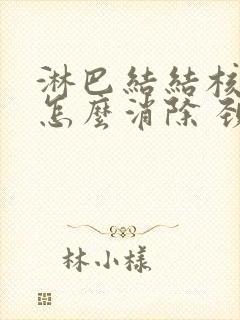 淋巴結結核
怎麼消除
林小樣